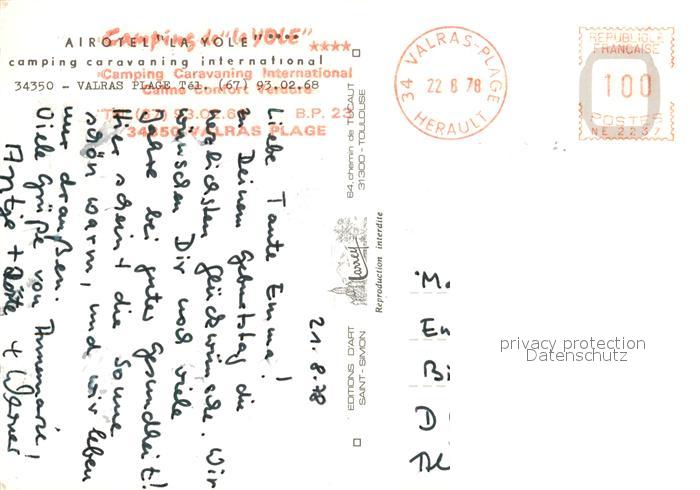 AIROTEL "LA YOLE" ****
camping caravaning international
34350 - VALRAS PLAGE Tél. (67) 93.02.68
Camping de "la YOLE"
****
Camping Caravaning International
Calme Confort Verdure
Tél. (67) 93.02.68 B.P. 23
34350 VALRAS PLAGE
21.8.78
Liebe Tante Emma!
Zu Deinem Geburtstag die
herzlichsten Glückwünsche. Wir
wünschen Dir noch viele
Jahre bei guter Gesundheit!
Hier scheint die Sonne
schön warm, und wir leben
nur draußen.
Viele Grüße von Annemarie!
Antje + Dörte + Werner
64, chemin de TUCAUT
31300 - TOULOUSE
Larrey
Reproduction interdite
EDITIONS D'ART
SAINT-SIMON
34 VALRAS-PLAGE
22 8 78
HERAULT
REPUBLIQUE
FRANCAISE
100
POSTES
NE 2237
M.
En
Bi
D
privacy protection
Datenschutz